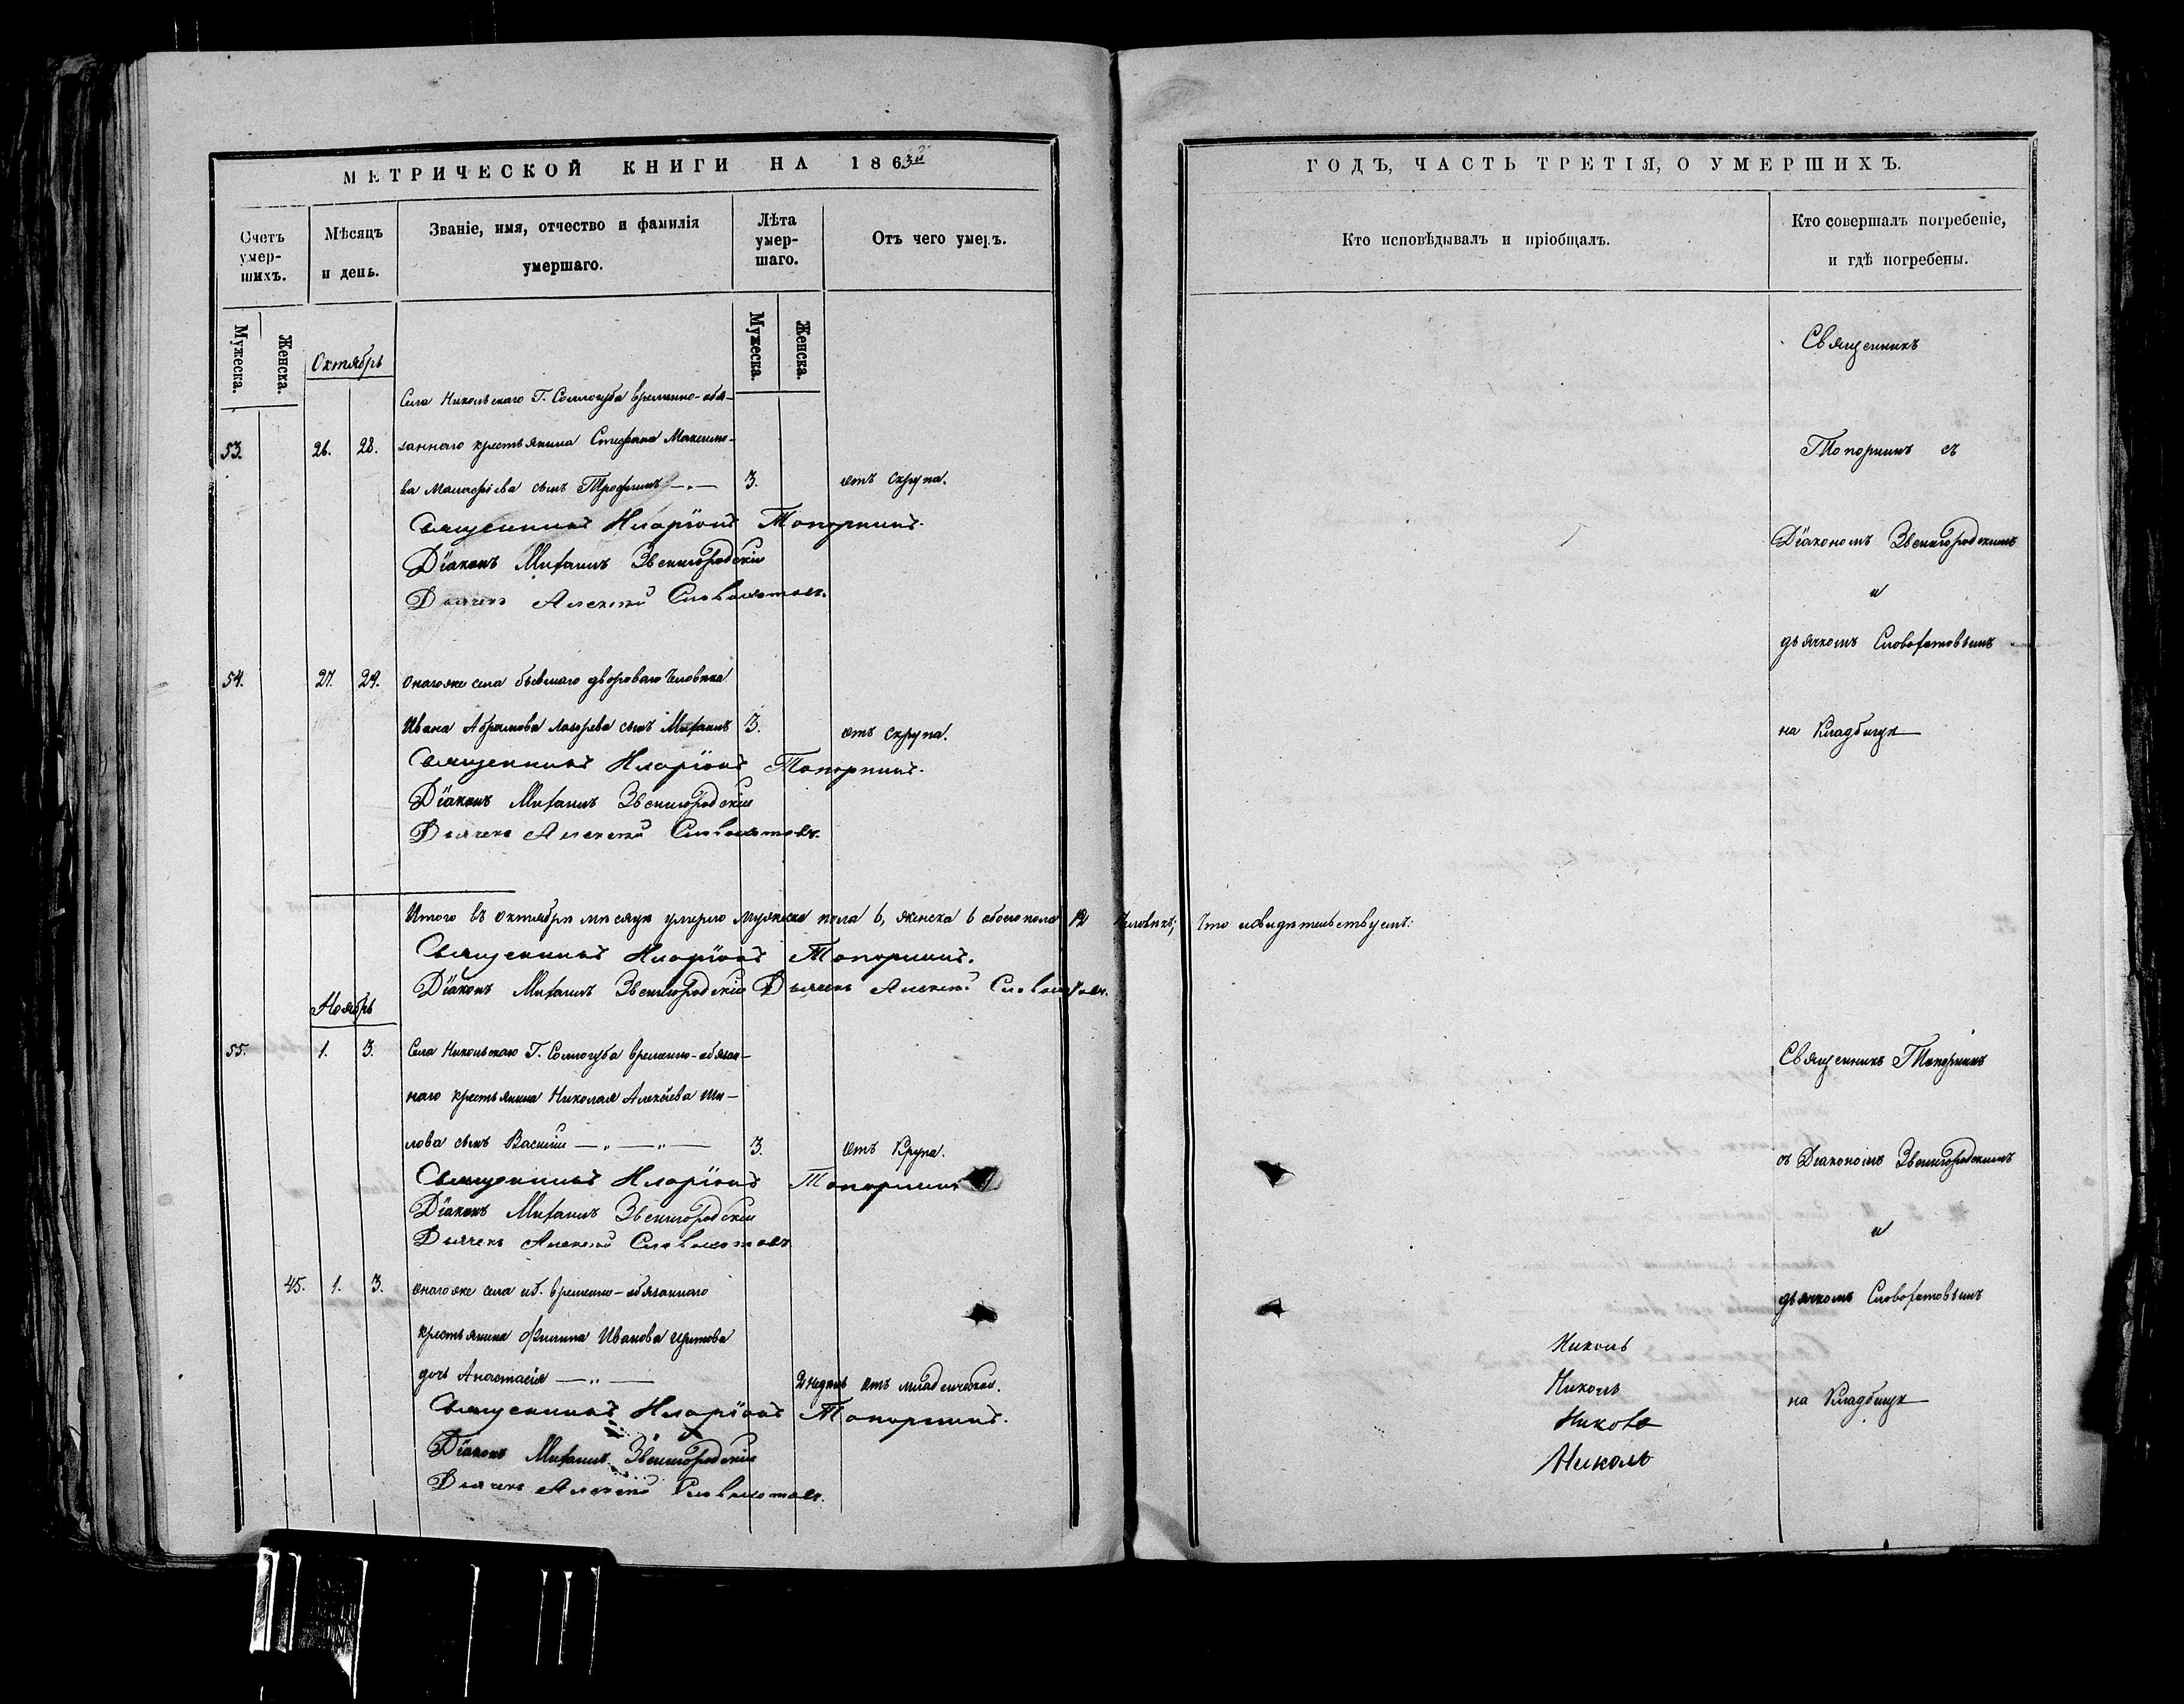 МЕТРИЧЕСКОЙ КНИГИ НА 1863й
Счетъ умер-шихъ.
Мѣсяцъ и день.
Званіе, имя, отчество и фамилія умершаго.
Лѣта умер-шаго.
Отъ чего умеръ.
Мужеска.
Женска.
Мужеска.
Женска.
Октябрь
Села Никольскаго Г. Соллогуба временно-обя-
53. 26. 28. заннаго крестьянина Стефана Максимо-
ва сынъ Трофимъ 3. отъ скрупа.
Священникъ Иларіонъ Топорнинъ.
Діаконъ Михаилъ Звенигородскій
Дьячекъ Алексѣй Словохотовъ.
54. 27. 29. Онагоже села бывшаго двороваго человѣка
Ивана Абрамова Лазарева сынъ Михаилъ 3. отъ скрупа.
Священникъ Иларіонъ Топорнинъ.
Діаконъ Михаилъ Звенигородскій
Дьячекъ Алексѣй Словохотовъ.
Итого въ Октябрѣ мѣсяцѣ умерло мужеска пола 6, женска 6 обоего пола 12 человѣкъ;
Священникъ Иларіонъ Топорнинъ.
Діаконъ Михаилъ Звенигородскій Дьячекъ Алексѣй Словохотовъ.
Ноябрь
55. 1. 3. Села Никольскаго Г. Соллогуба временно-обязан-
наго крестьянина Николая Алексѣева Ши-
лова сынъ Василій 3. отъ Крупа.
Священникъ Иларіонъ Топорнинъ
Діаконъ Михаилъ Звенигородскій
Дьячекъ Алексѣй Словохотовъ
45. 1. 3. Онагоже села временно-обязаннаго
крестьянина Филиппа Иванова
дочь Анастасія 2 недѣль отъ младенческой.
Священникъ Иларіонъ Топорнинъ.
Діаконъ Михаилъ Звенигородскій
Дьячекъ Алексѣй Словохотовъ.
ГОДЪ, ЧАСТЬ ТРЕТІЯ, О УМЕРШИХЪ.
Кто исповѣдывалъ и пріобщалъ.
Кто совершалъ погребеніе, и гдѣ погребены.
Священникъ
Топорнинъ съ
Діакономъ Звенигородскимъ
и
дьячкомъ Словохотовымъ
на Кладбищѣ
Что свидѣтельствуемъ:
Священникъ Топорнинъ
съ Діакономъ Звенигородскимъ
и
дьячкомъ Словохотовымъ
на Кладбищѣ
Николь
Николь
Николь